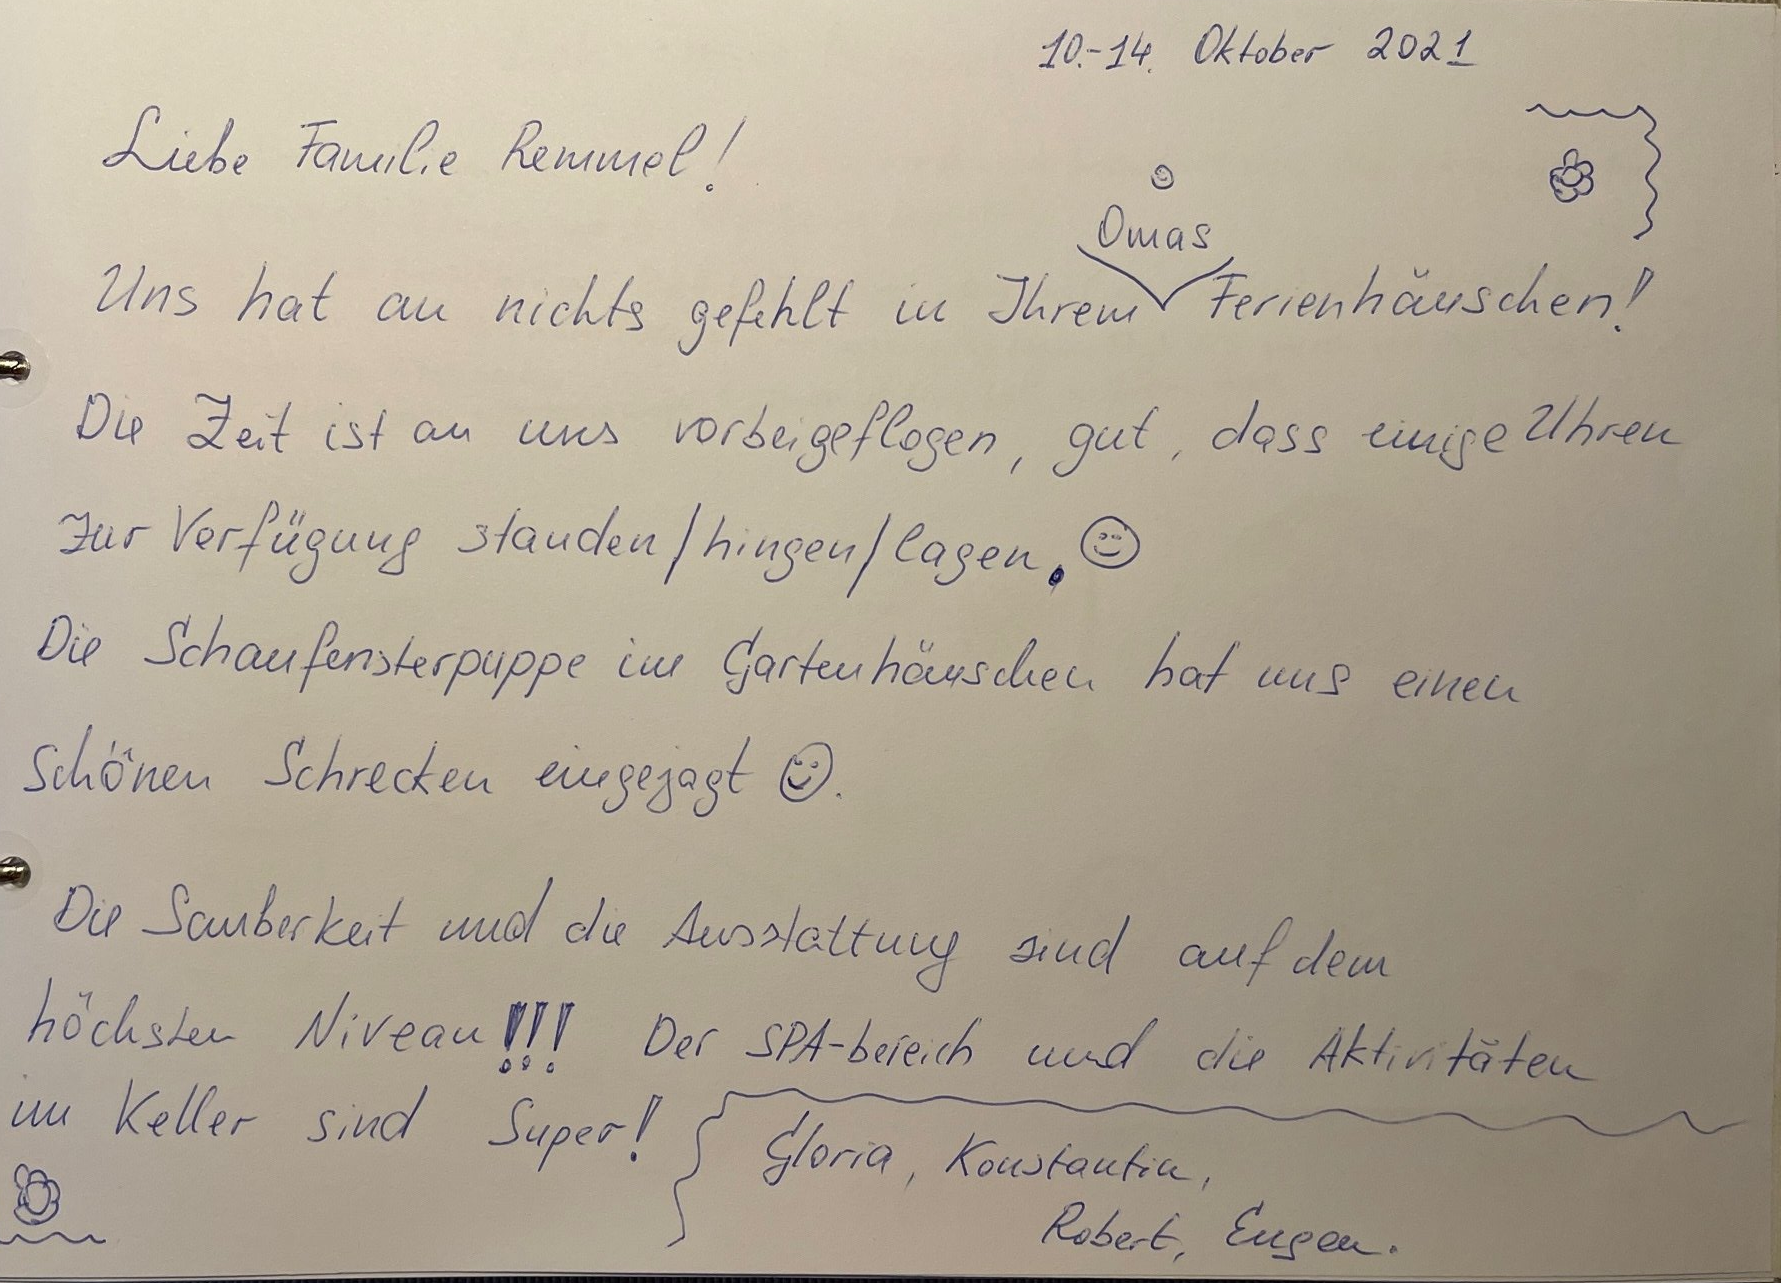 10.-14. Oktober 2021
Liebe Familie Remmel!
Omas
Uns hat an nichts gefehlt in Ihrem Ferienhäuschen!
Die Zeit ist an uns vorbeigeflogen, gut, dass einige Uhren
zur Verfügung standen/hingen/lagen. ☺
Die Schaufensterpuppe im Gartenhäuschen hat uns einen
schönen Schrecken eingejagt ☺.
Die Sauberkeit und die Ausstattung sind auf dem
höchsten Niveau!!! Der SPA-bereich und die Aktivitäten
im Keller sind Super!
Gloria, Konstantin,
Robert, Eugen.